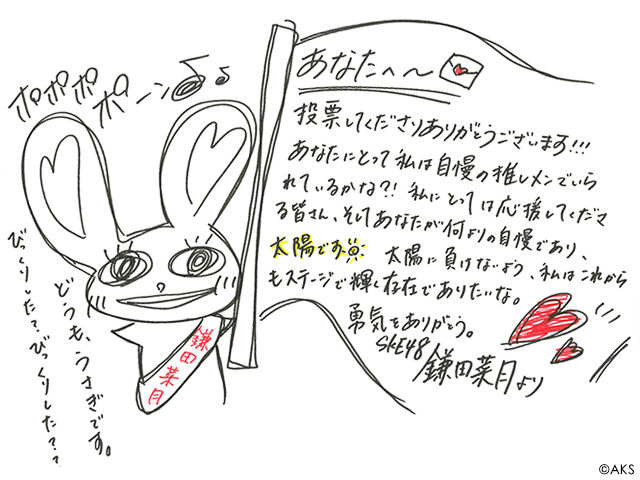 ポポポポーン♪♪
あなたへ〜
投票してくださりありがとうございます!!!
あなたにとって私は自慢の推しメンでいら
れているかな?! 私にとっては応援してくださ
る皆さん、そしてあなたが何よりの自慢であり、
太陽です 太陽に負けないよう、私はこれから
もステージで輝く存在でありたいな。
勇気をありがとう。
SKE48
鎌田菜月より
鎌田菜月
どうも、うさぎです。
びっくりした?びっくりした??
©AKS